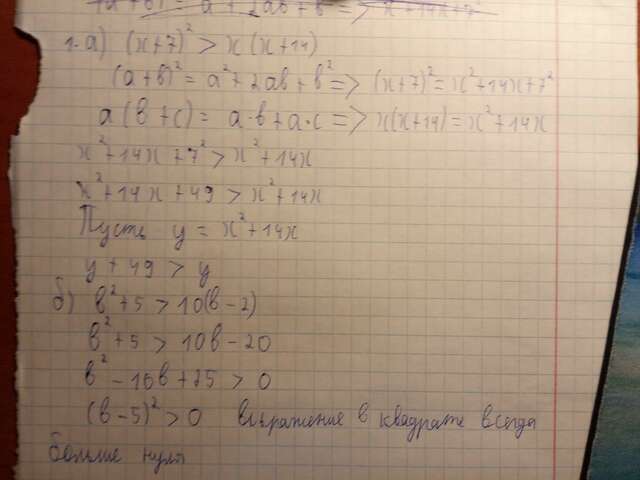 (a+b)² = a² + 2ab + b² => x² + 14x + 7²
1. а) (x+7)² > x(x+14)
(a+b)² = a² + 2ab + b² => (x+7)² = x² + 14x + 7²
a(b+c) = a·b + a·c => x(x+14) = x² + 14x
x² + 14x + 7² > x² + 14x
x² + 14x + 49 > x² + 14x
Пусть y = x² + 14x
y + 49 > y
б) b² + 5 > 10(b-2)
b² + 5 > 10b - 20
b² - 10b + 25 > 0
(b-5)² > 0 выражение в квадрате всегда
больше нуля